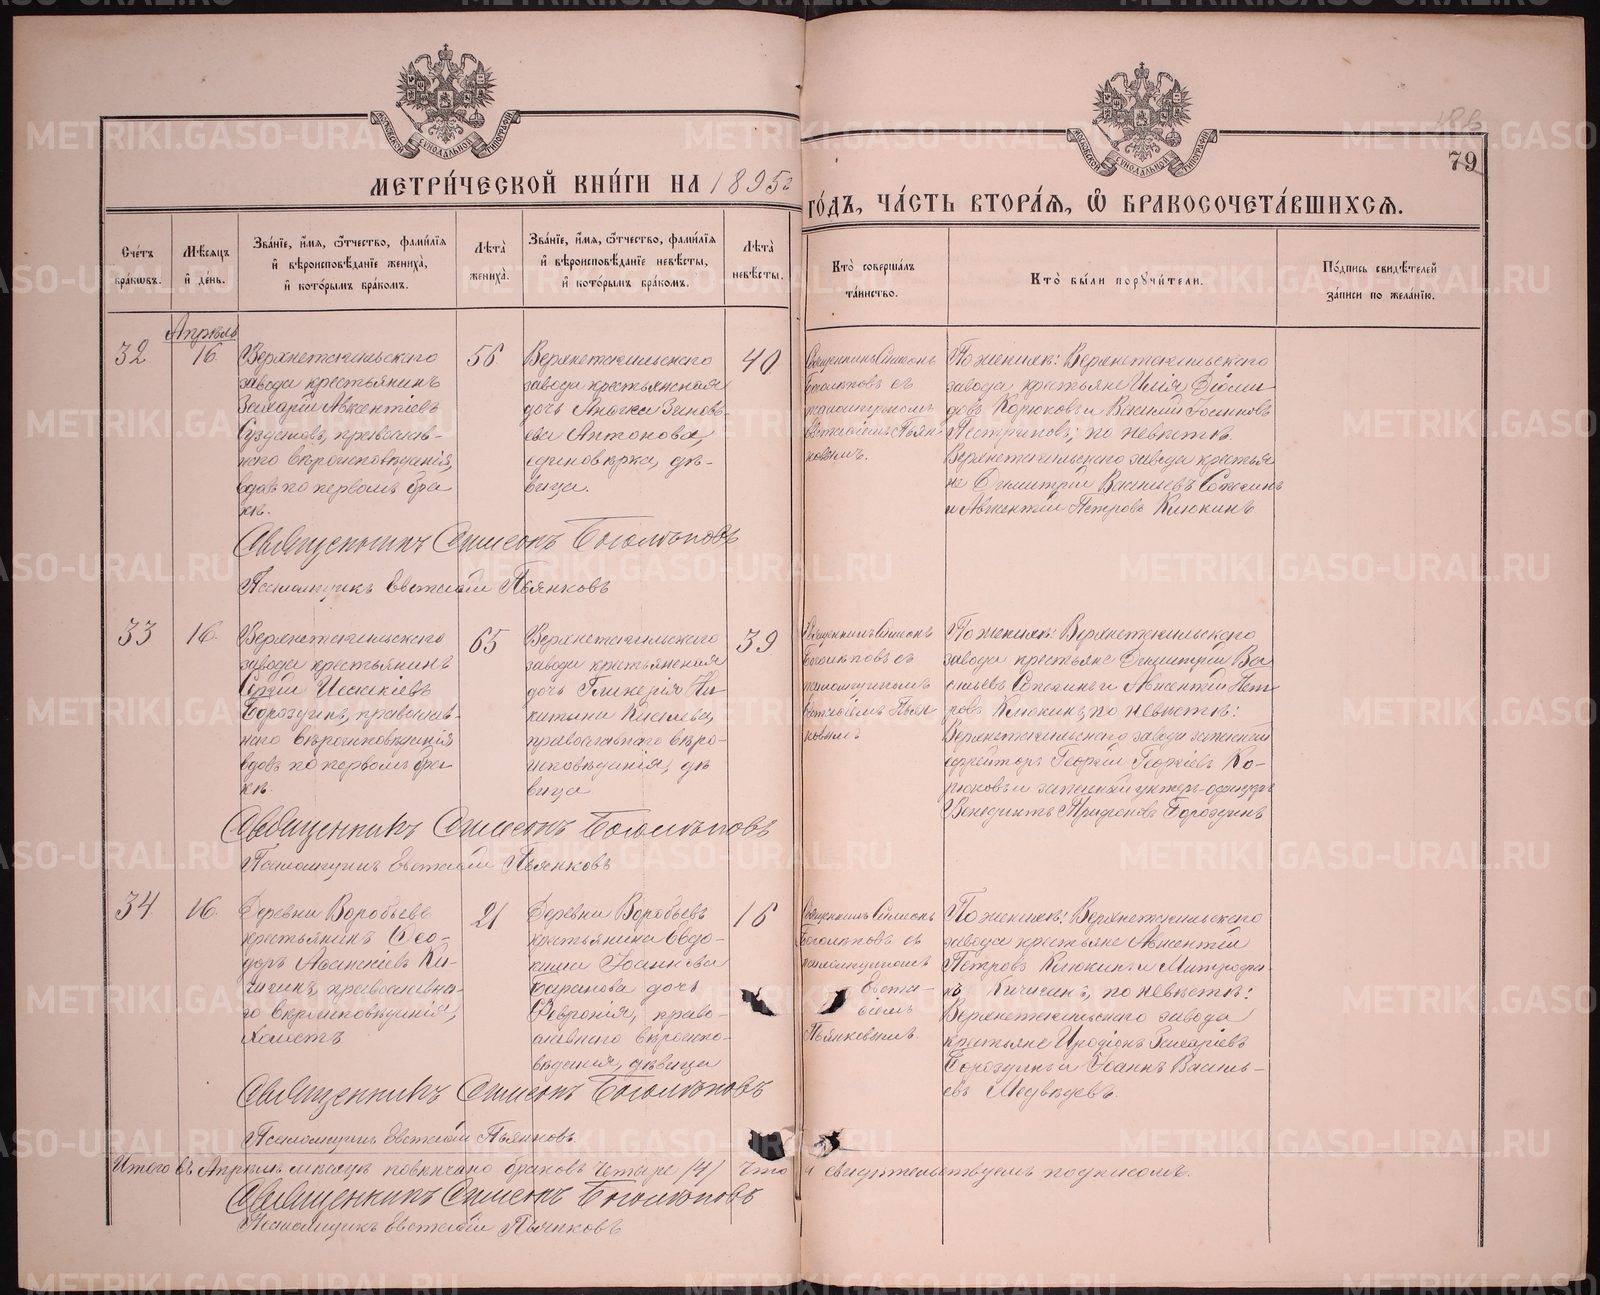 МЕТРИ́ЧЕСКОЙ КНИ́ГИ НА 1895 г
ГО́ДЪ, ЧА́СТЬ ВТОРА́Я, Ѽ БРАКОСОЧЕТА́ВШИХСЯ.
79
МОСКОВСКОЙ СѴНОДАЛЬНОЙ ТИПОГРАФІИ
МОСКОВСКОЙ СѴНОДАЛЬНОЙ ТИПОГРАФІИ
Сче́тъ
бра́кѡвъ.
Мѣ́сяцъ
и҆ де́нь.
Зва́нїе, и҆́мя, ѻ҆́тчество, фами́лїя
и҆ вѣроисповѣ́данїе жениха̀,
и҆ кото́рымъ бра́комъ.
Лѣ́та
жениха̀.
Зва́нїе, и҆́мя, ѻ҆́тчество, фами́лїя
и҆ вѣроисповѣ́данїе невѣ́сты,
и҆ кото́рымъ бра́комъ.
Лѣ́та
невѣ́сты.
Кто̀ соверша́лъ
та́инство.
Кто̀ бы́ли порꙋчи́тели.
По́дпись свидѣ́телей
за́писи по жела́нїю.
Апрѣль
32
16.
Верхнетагильскаго
завода крестьянинъ
Захарій Авксентіевъ
православ-
наго вѣроисповѣданія,
вдовъ по первомъ бра
кѣ.
56
Верхнетагильскаго
завода крестьянская
дочь Зиновь-
ева Антонова,
единовѣрка, дѣ-
вица.
40
Священникъ Симеонъ
Боголѣповъ съ
псаломщикомъ
Евстафіемъ Пьян
ковымъ.
По женихѣ: Верхнетагильскаго
завода крестьяне Илія Діоми
довъ Корюковъ и Василій Іоанновъ
по невѣстѣ:
Верхнетагильскаго завода крестья
не Димитрій Васильевъ
и Авксентій Петровъ Клюкинъ
Священникъ Симеонъ Боголѣповъ
Псаломщикъ Евстафій Пьянковъ
33
16.
Верхнетагильскаго
завода крестьянинъ
Бороздинъ, православ-
наго вѣроисповѣданія
вдовъ по первомъ бра-
кѣ.
65
Верхнетагильскаго
завода крестьянская
дочь Гликерія Ни-
китина Киселева,
православнаго вѣро-
исповѣданія, дѣ
вица
39
Священникъ Симеонъ
Боголѣповъ съ
псаломщикомъ
Евстафіемъ Пьян
ковымъ
По женихѣ: Верхнетагильскаго
завода крестьяне Димитрій Ва
сильевъ и Авксентій Пет
ровъ Клюкинъ, по невѣстѣ:
Верхнетагильскаго завода запасный
ефрейторъ Георгій Георгіевъ Ко-
рюковъ и запасный унтеръ-офицеръ
Венедиктъ Трифоновъ Бороздинъ
Священникъ Симеонъ Боголѣповъ
Псаломщикъ Евстафій Пьянковъ
34
16.
Деревни Воробьевъ
крестьянинъ Ѳео-
доръ Аѳанасіевъ Ки-
чигинъ, православна-
го вѣроисповѣданія,
холостъ
21
Деревни Воробьевъ
крестьянина Евдо-
кима Іоаннова
Баранова дочь
Февронія, право-
славнаго вѣроиспо-
вѣданія, дѣвица
16
Священникъ Симеонъ
Боголѣповъ съ
псаломщикомъ
Евста-
фіемъ
Пьянковымъ.
По женихѣ: Верхнетагильскаго
завода крестьяне Авксентій
Петровъ Клюкинъ и Митрофа
нъ Кичигинъ, по невѣстѣ:
Верхнетагильскаго завода
крестьяне Иродіонъ Захаріевъ
Бороздинъ и Іоаннъ Василь-
евъ Медвѣдевъ.
Священникъ Симеонъ Боголѣповъ
Псаломщикъ Евстафій Пьянковъ.
Итого въ Апрѣлѣ мѣсяцѣ повѣнчано браковъ четыре (4) Что и свидѣтельствуемъ подписомъ.
Священникъ Симеонъ Боголѣповъ
Псаломщикъ Евстафій Пьянковъ
METRIKI.GASO-URAL.RU